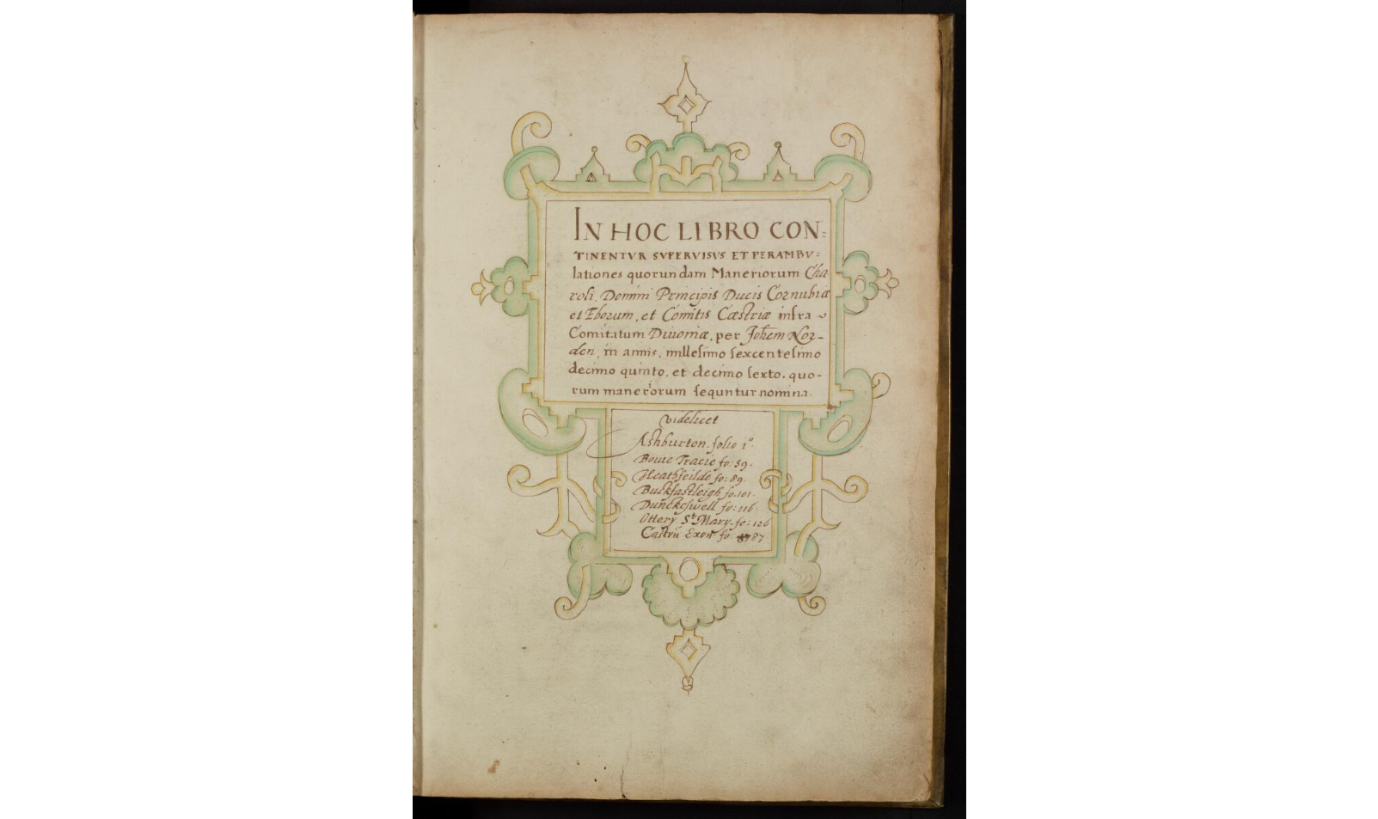 IN HOC LIBRO CON=
TINENTVR SVPERVISVS ET PERAMBV=
lationes quorundam Maneriorum Cha
roli, Domini Principis Ducis Cornubiæ
et Eborum, et Comitis Cæstriæ infra
Comitatum Divoniæ, per Johem Nor-
den, in annis, millesimo sexcentesimo
decimo quinto, et decimo sexto. quo-
rum manerorum sequntur nomina.
videlicet
Ashburton. folio 1º.
Bouie Tracie fo: 59.
Heathfeilde fo: 89.
Buckfastleigh fo. 101.
Dunckeswell fo: 116
Ottery St Mary. fo: 126
Castrū Exon fo 87